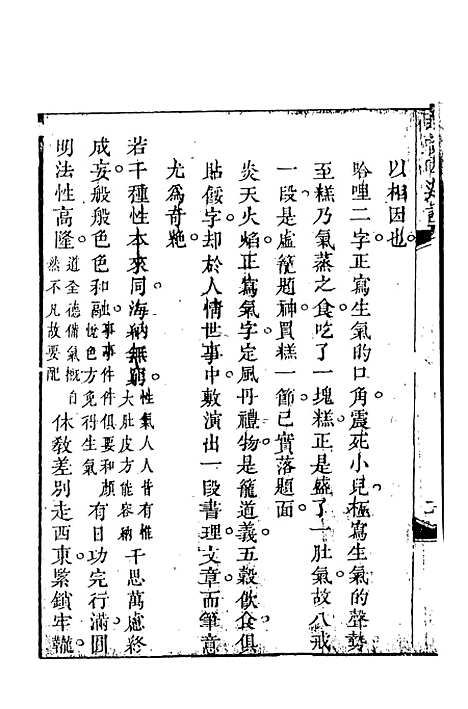 以相因也
哈哩二字正寫生氣的口角震死小兒極寫生氣的聲勢
至糕乃氣蒸之食吃了一塊糕正是盛了一肚氣故八戒
一段是虛籠題神買糕一節已實落題面
炎天火焰正寫氣字定風丹禮物是籠道義五穀飲食俱
貼餒字却於人情世事中敷演出一段書理文章而筆意
尤為奇艷
若干種性本來同海納無窮性氣人人皆有惟大肚皮方能容納千思萬慮終
成妄般般色色和融事事件件俱要和顏悅色方免得生氣有日功完行滿圓
明法性高隆道全德備氣概自然不凡故要配休敎差別走西東緊鎖牢䩺